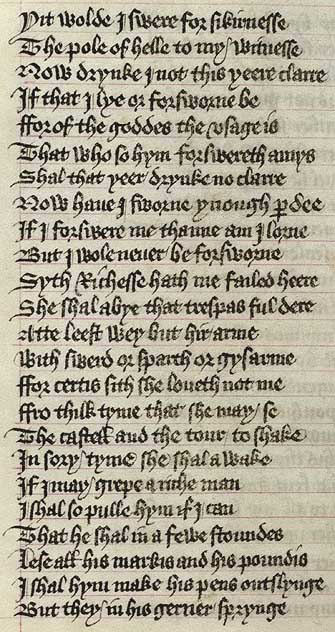 Yit wolde I swere for sikirnesse
The pole of helle to my witnesse
Now drynke I not this yeere clarre
If that I lye or forsworne be
ffor of the goddes the vsage is
That who so hym forswereth amys
Shal that yeer drynke no clarre
Now haue I sworne ynough ꝑdee
If I forswere me thanne am I lorne
But I wole neuer be forsworne
Syth Richesse hath me failed heere
She shal abye that trespas ful dere
Atte leest wey but hir arme
With swerd or sparth or gysarme
ffor certis sith she loueth not me
ffro thilk tyme that she may se
The castell and the tour to shake
In sory tyme she shal a wake
If I may grepe a riche man
I shal so pulle hym if I can
That he shal in a fewe stoundes
Lese all his markis and his poundis
I shal hym make his pens outslynge
But they in his gerner sprynge